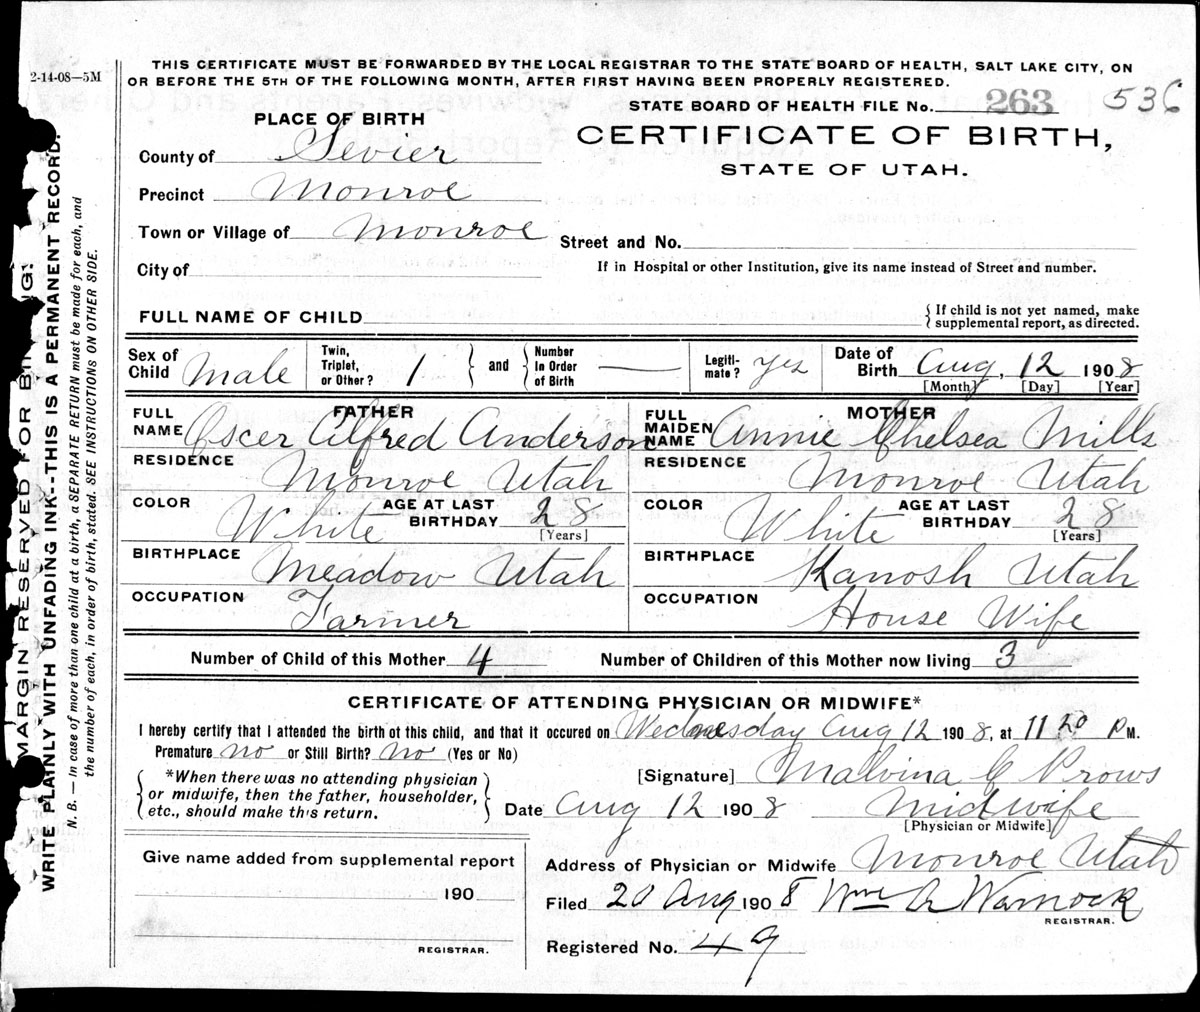 2-14-08—5M
THIS CERTIFICATE MUST BE FORWARDED BY THE LOCAL REGISTRAR TO THE STATE BOARD OF HEALTH, SALT LAKE CITY, ON
OR BEFORE THE 5TH OF THE FOLLOWING MONTH, AFTER FIRST HAVING BEEN PROPERLY REGISTERED.
STATE BOARD OF HEALTH FILE No. 263 536
PLACE OF BIRTH
CERTIFICATE OF BIRTH,
STATE OF UTAH.
County of Sevier
Precinct Monroe
Town or Village of Monroe
Street and No.
City of
If in Hospital or other Institution, give its name instead of Street and number.
FULL NAME OF CHILD
{ If child is not yet named, make
supplemental report, as directed.
Sex of Child Male
Twin, Triplet, or Other? 1 } and { Number In Order of Birth —
Legiti-mate? yes
Date of Birth Aug, 12 1908
[Month] [Day] [Year]
FATHER
FULL NAME Oscer Alfred Anderson
RESIDENCE Monroe Utah
COLOR White AGE AT LAST BIRTHDAY 28
[Years]
BIRTHPLACE Meadow Utah
OCCUPATION Farmer
MOTHER
FULL MAIDEN NAME Annie Chelsea Mills
RESIDENCE Monroe Utah
COLOR White AGE AT LAST BIRTHDAY 28
[Years]
BIRTHPLACE Kanosh Utah
OCCUPATION House Wife
Number of Child of this Mother 4 Number of Children of this Mother now living 3
CERTIFICATE OF ATTENDING PHYSICIAN OR MIDWIFE*
I hereby certify that I attended the birth of this child, and that it occured on Wednesday Aug 12 1908, at 11 20 PM.
Premature no or Still Birth? no (Yes or No)
{ *When there was no attending physician
or midwife, then the father, householder,
etc., should make this return. }
[Signature] Malvina C Prows
Date Aug 12 1908 Midwife
[Physician or Midwife]
Give name added from supplemental report
190
REGISTRAR.
Address of Physician or Midwife Monroe Utah
Filed 20 Aug 1908 Wm A Warnock
REGISTRAR.
Registered No. 49
MARGIN RESERVED FOR
WRITE PLAINLY WITH UNFADING INK--THIS IS A PERMANENT RECORD.
N. B. — In case of more than one child at a birth, a SEPARATE RETURN must be made for each, and
the number of each, in order of birth, stated. SEE INSTRUCTIONS ON OTHER SIDE.